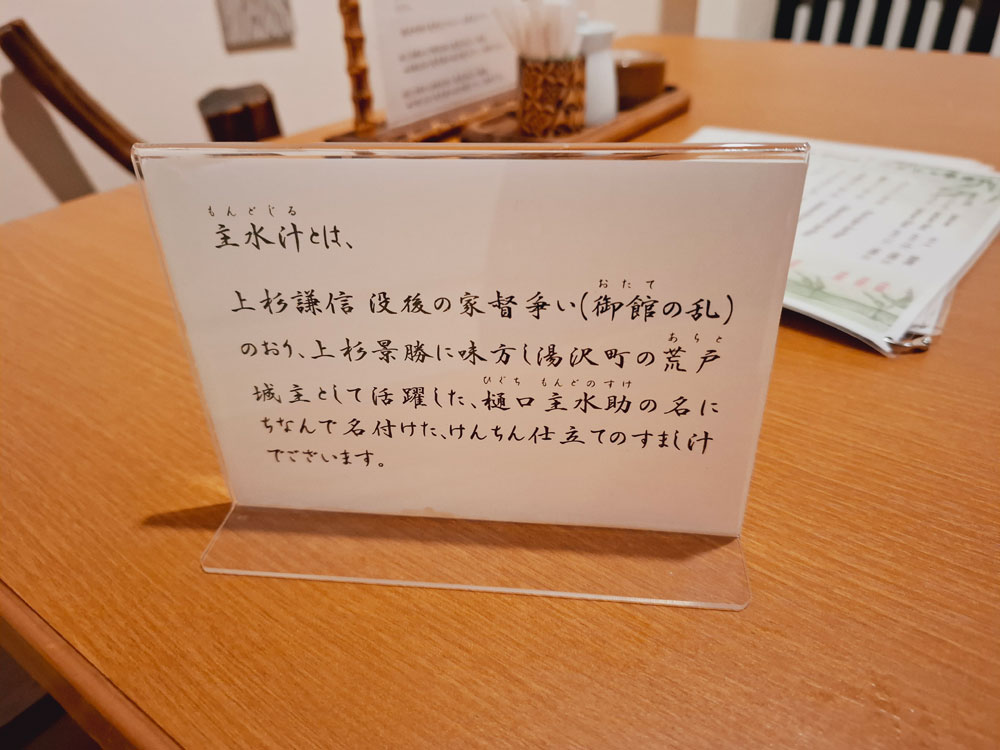 もんどじる
主水汁とは、
おたて
上杉謙信 没後の家督争い(御館の乱)
あらと
のおり、上杉景勝に味方し湯沢町の荒戸
ひぐち もんどのすけ
城主として活躍した、樋口主水助の名に
ちなんで名付けた、けんちん仕立てのすまし汁
でございます。